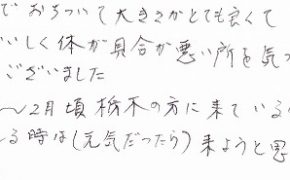 で おちついて大きさがとても良くて
いしく体が具合が悪い所を気づ
ございました
～2月頃栃木の方に来ている
る時は(元気だったら)来ようと思